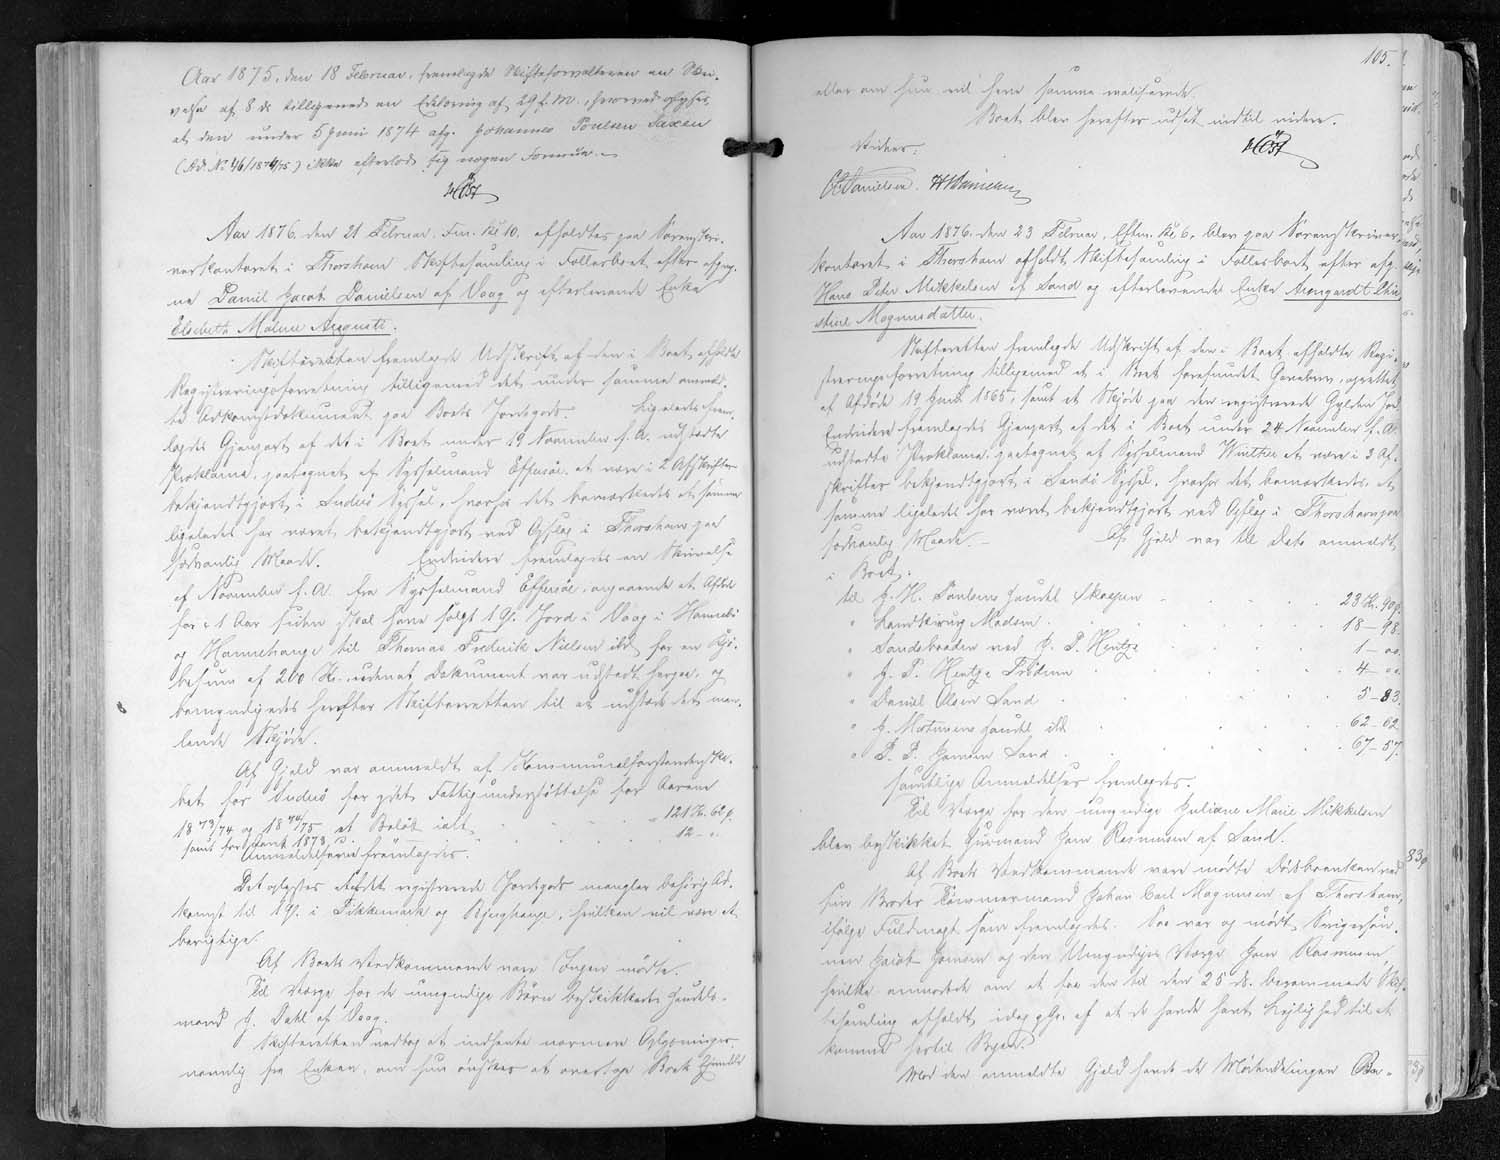 Aar 1875, den 18 Februar, fremlagde Skifteforvalteren en Skri-
velse af 8 ds tilligemed en Erklæring af 29 f. M., hvorved oplyses,
at den under 5 Juni 1874 afg. Johannes Poulsen Saxen
(Ad. No 46/1874/75) ikke efterlod sig nogen Formue.
Aar 1876, den 21 Februar, Fm. Kl 10, afholdtes paa Sorenskri-
verkontoret i Thorshavn Skiftesamling i Fællesboet efter afgag-
ne Daniel Jacob Danielsen af Vaag og efterlevende Enke
Elsebeth Malene Auguste.
Skifteretten fremlagde Udskrift af den i Boet afholdte
Registreringsforretning tilligemed det under samme anmeld-
te Adkomstdokument paa Boets Jordegods. Ligeledes frem-
lagdes Gjenpart af det i Boet under 19 November f. A. udstedte
Proklama, paategnet af Sysselmand Effersøe at være i 2 Afskrifter
bekjendtgjort i Suderø Syssel, hvorhos det bemærkedes at samme
ligeledes har været bekjendtgjort ved Opslag i Thorshavn paa
sædvanlig Maade. Endvidere fremlagdes en Skrivelse
af November f. A. fra Sysselmand Effersøe, angaaende at Afdøde
for 1 Aar siden skal have solgt 1 Gl. Jord i Vaag i
og til Thomas Frederik Nielsen ibd. for en Kjø-
besum af 200 Kr., uden at Dokument var udstedt herpaa, og
bemyndigedes herefter Skifteretten til at udstede det man-
lende Skjøde.
Af Gjæld var anmeldt af Kommunalforstanderska-
bet for Suderø for ydet Fattigunderstøttelse for Aarene
1873/74 og 1874/75 et Beløb ialt 121 Kr. 62 ø.
samt for 1873 12 - "
Anmeldelserne fremlagdes.
Det oplystes at det registrerede Jordegods mangler behørig Ad-
komst til 1 Gl. i og , hvilken vil være at
berigtige.
Af Boets Vedkommende vare Ingen mødte.
Til Værge for de umyndige Børn beskikkedes Handels-
mand J. Dahl af Vaag.
Skifteretten vedtog at indhente nærmere Oplysninger,
navnlig fra Enken, om hun ønskede at overtage Boets Eiendele
105.
eller om hun vil have samme realiserede.
Boet blev herefter udsat indtil videre.
Vidner:
Danielsen. H Danielsen
Aar 1876, den 23 Februar, Eftm. Kl 6, blev paa Sorenskriver-
kontoret i Thorshavn afholdt Skiftesamling i Fællesboet efter afg.
Hans Peter Mikkelsen af Sand og efterlevende Enke Armgardt Chri-
stine Magnusdatter.
Skifteretten fremlagde Udskrift af den i Boet afholdte Regi-
streringsforretning tilligemed et i Boet forefundet Gavebrev, oprettet
af Afdøde 19 Juni 1865, samt et Skjøde paa den registrerede Gylden Jord.
Endvidere fremlagdes Gjenpart af det i Boet under 24 November f. A.
udstedte Proklama, paategnet af Sysselmand Winther at være i 3 Af-
skrifter bekjendtgjort i Sandø Syssel, hvorhos det bemærkedes, at
samme ligeledes har været bekjendtgjort ved Opslag i Thorshavn paa
sædvanlig Maade. Af Gjæld var til Dato anmeldt
i Boet:
til J. H. Poulsens Handel Skopen 23 Kr. 90 ø.
" Landkirurg Madsen 18 - 98.
" Sandsbanken ved J. P. Hentze 1 - 00.
" J. P. Hentze 4 - 00.
" Daniel Olsen Sand 5 - 83.
" J. Mortensens Handel ibd. 62 - 62.
" P. P. Jensen Sand 67 - 57.
samtlige Anmeldelser fremlagdes.
Til Værge for den umyndige Juliane Marie Mikkelsen
blev beskikket Huusmand Jens Rasmussen af Sand.
Af Boets Vedkommende vare mødte Dødsboenken ved
sin Broder Tømmermand Johan Carl Magnussen af Thorshavn,
ifølge Fuldmagt som fremlagdes. Saa var og mødt Svigersøn-
nen Jacob Jensen og den Umyndiges Værge Jens Rasmussen,
hvilke anmodede om at faa den til den 25 ds. berammede Skif-
tesamling afholdt idag paa Gr. af at de havde havt Leilighed til at
komme hertil Byen.
Mod den anmeldte Gjæld havde de Mødende ingen Be-